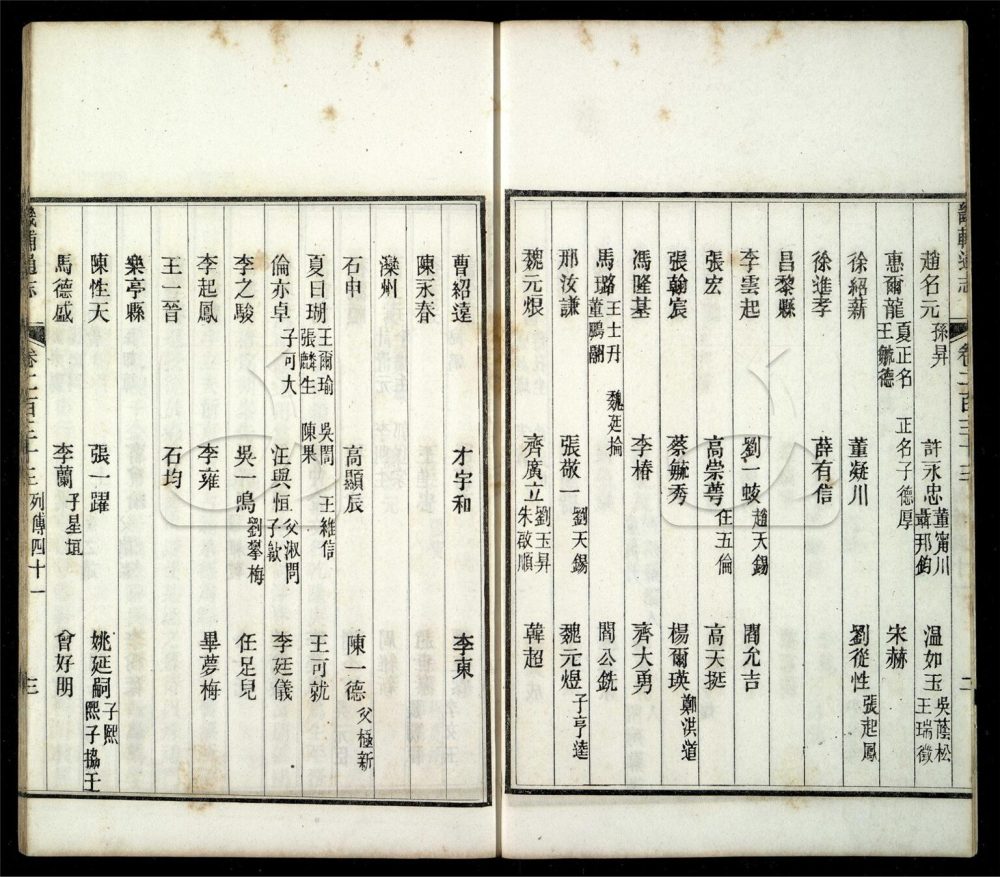 畿輔通志
卷二百三十三
二
趙名元 孫昇 許永忠 董甯川 韓邦鈞 温如玉 吳蔭松 王瑞徵
惠爾龍 夏正名 王毓德 正名子德厚 宋赫
徐紹薪 董凝川 劉從性 張起鳳
徐進孝 薛有信
昌黎縣
李雲起 劉一蛟 趙天錫 閻允吉
張宏 高崇萼 任五倫 高天挺
張翰宸 蔡毓秀 楊爾瑛 鄭淇道
馮隆基 李椿 齊大勇
馬璐 王士丹 董鵬翮 魏廷掄 閻公銑
邢汝謙 張敬一 劉天錫 魏元煜 子亨逵
魏元烺 齊廣立 劉玉昇 朱啟順 韓超
曹紹遠 才宇和 李東
陳永春
灤州
石申 高顯辰 陳一德 父極新
夏日瑚 王爾瑜 張麟生 吳闓 陳果 王維信 王可就
倫亦卓 子可大 汪與恒 父淑問 子歙 李廷儀
李之駿 吳一鳴 劉攀梅 任足兒
李起鳳 李雍 畢夢梅
王一晉 石均
樂亭縣
陳性天 張一躍 姚延嗣 子熙 熙子協王
馬德盛 李蘭 子星垣 會好朋
畿輔通志
卷二百三十三 列傳四十一
三